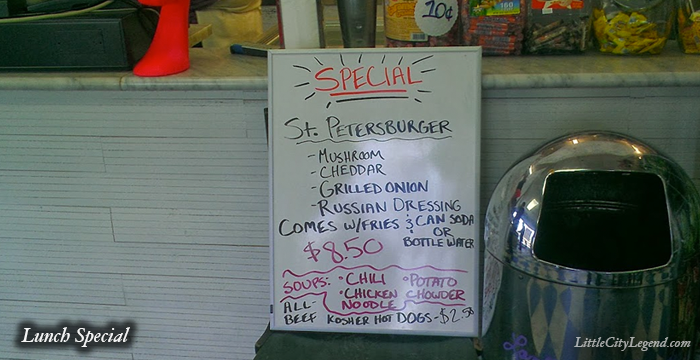 10¢
SPECIAL
St. PETERSBURGER
- MUSHROOM
- CHEDDAR
- GRILLED ONION
- RUSSIAN DRESSING
COMES W/FRIES & CAN SODA
OR
BOTTLE WATER
$8.50
SOUPS: • CHILI • POTATO
• CHICKEN CHOWDER
NOODLE
ALL-
BEEF KOSHER HOT DOGS - $2.50
Lunch Special
LittleCityLegend.com